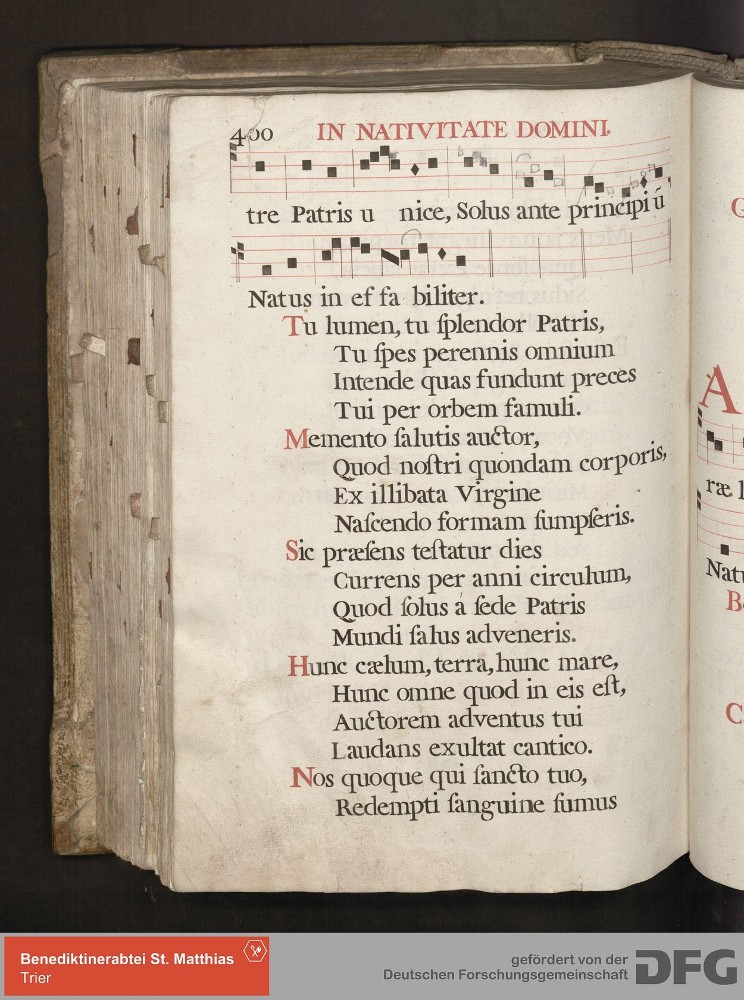 400 IN NATIVITATE DOMINI.
tre Patris u nice, Solus ante principiū
Natus in ef fa biliter.
Tu lumen, tu ſplendor Patris,
Tu ſpes perennis omnium
Intende quas fundunt preces
Tui per orbem famuli.
Memento ſalutis auctor,
Quod noſtri quondam corporis,
Ex illibata Virgine
Naſcendo formam ſumpſeris.
Sic præſens teſtatur dies
Currens per anni circulum,
Quod ſolus á ſede Patris
Mundi ſalus adveneris.
Hunc cælum, terra, hunc mare,
Hunc omne quod in eis eſt,
Auctorem adventus tui
Laudans exultat cantico.
Nos quoque qui ſancto tuo,
Redempti ſanguine ſumus
A
ræ
Natu
B
C
Benediktinerabtei St. Matthias
Trier
gefördert von der
Deutschen Forschungsgemeinschaft
DFG